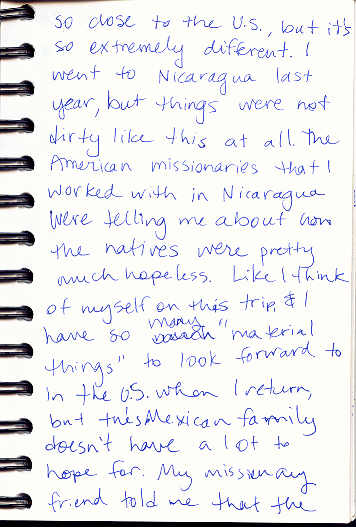 so close to the U.S., but it's
so extremely different. I
went to Nicaragua last
year, but things were not
dirty like this at all. The
American missionaries that I
worked with in Nicaragua
were telling me about how
the natives were pretty
much hopeless. Like I think
of myself on this trip, & I
have so many "material
things" to look forward to
in the U.S. when I return,
but this Mexican family
doesn't have a lot to
hope for. My missionary
friend told me that the